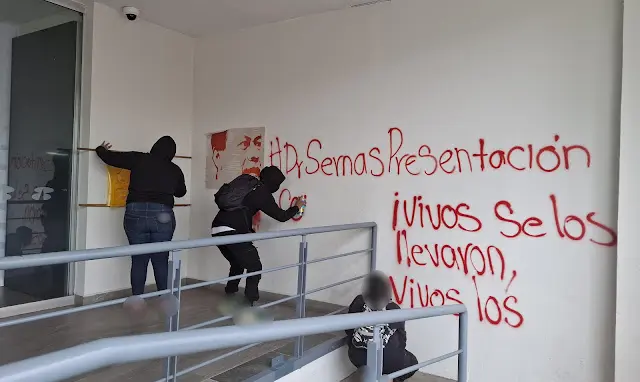 #DrSernasPresentación
¡Vivos se los
llevaron,
Vivos los